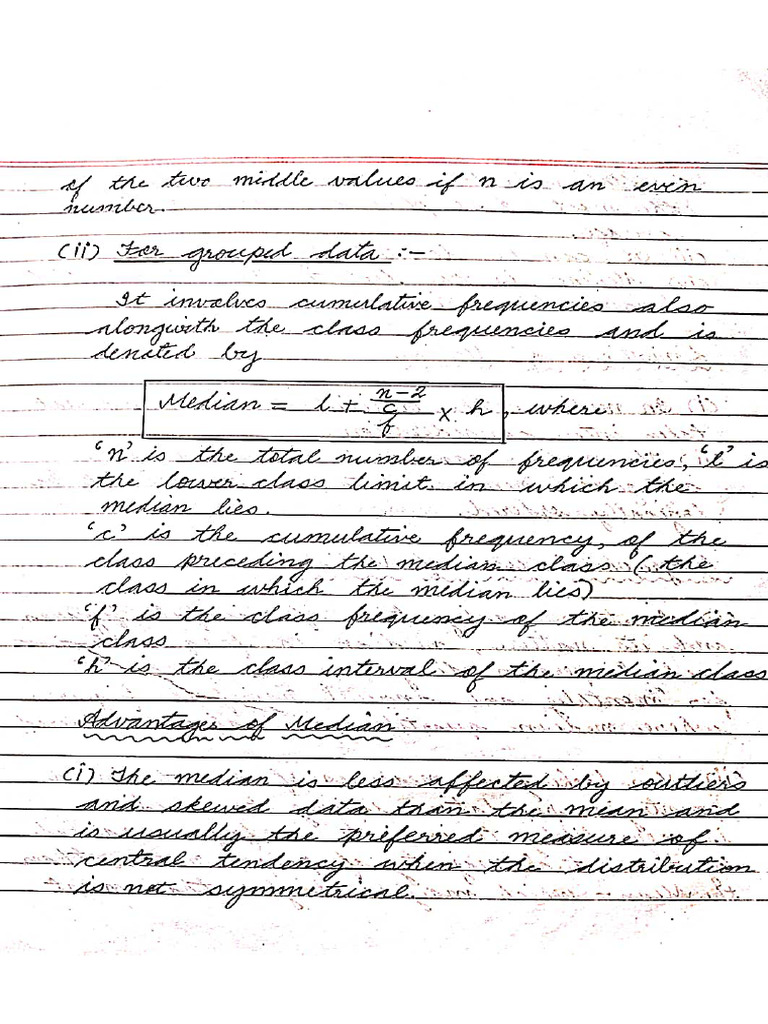 of the two middle values if n is an even
number.
(ii) For grouped data :-
It involves cumulative frequencies also
alongwith the class frequencies and is
denoted by
Median = l + n-2
c
f × h, where
'n' is the total number of frequencies, 'l' is
the lower class limit in which the
median lies.
'c' is the cumulative frequency, of the
class preceding the median class (the
class in which the median lies)
'f' is the class frequency of the median
class
'h' is the class interval of the median class
Advantages of Median
(i) The median is less affected by outliers
and skewed data than the mean and
is usually the preferred measure of
central tendency when the distribution
is not symmetrical.